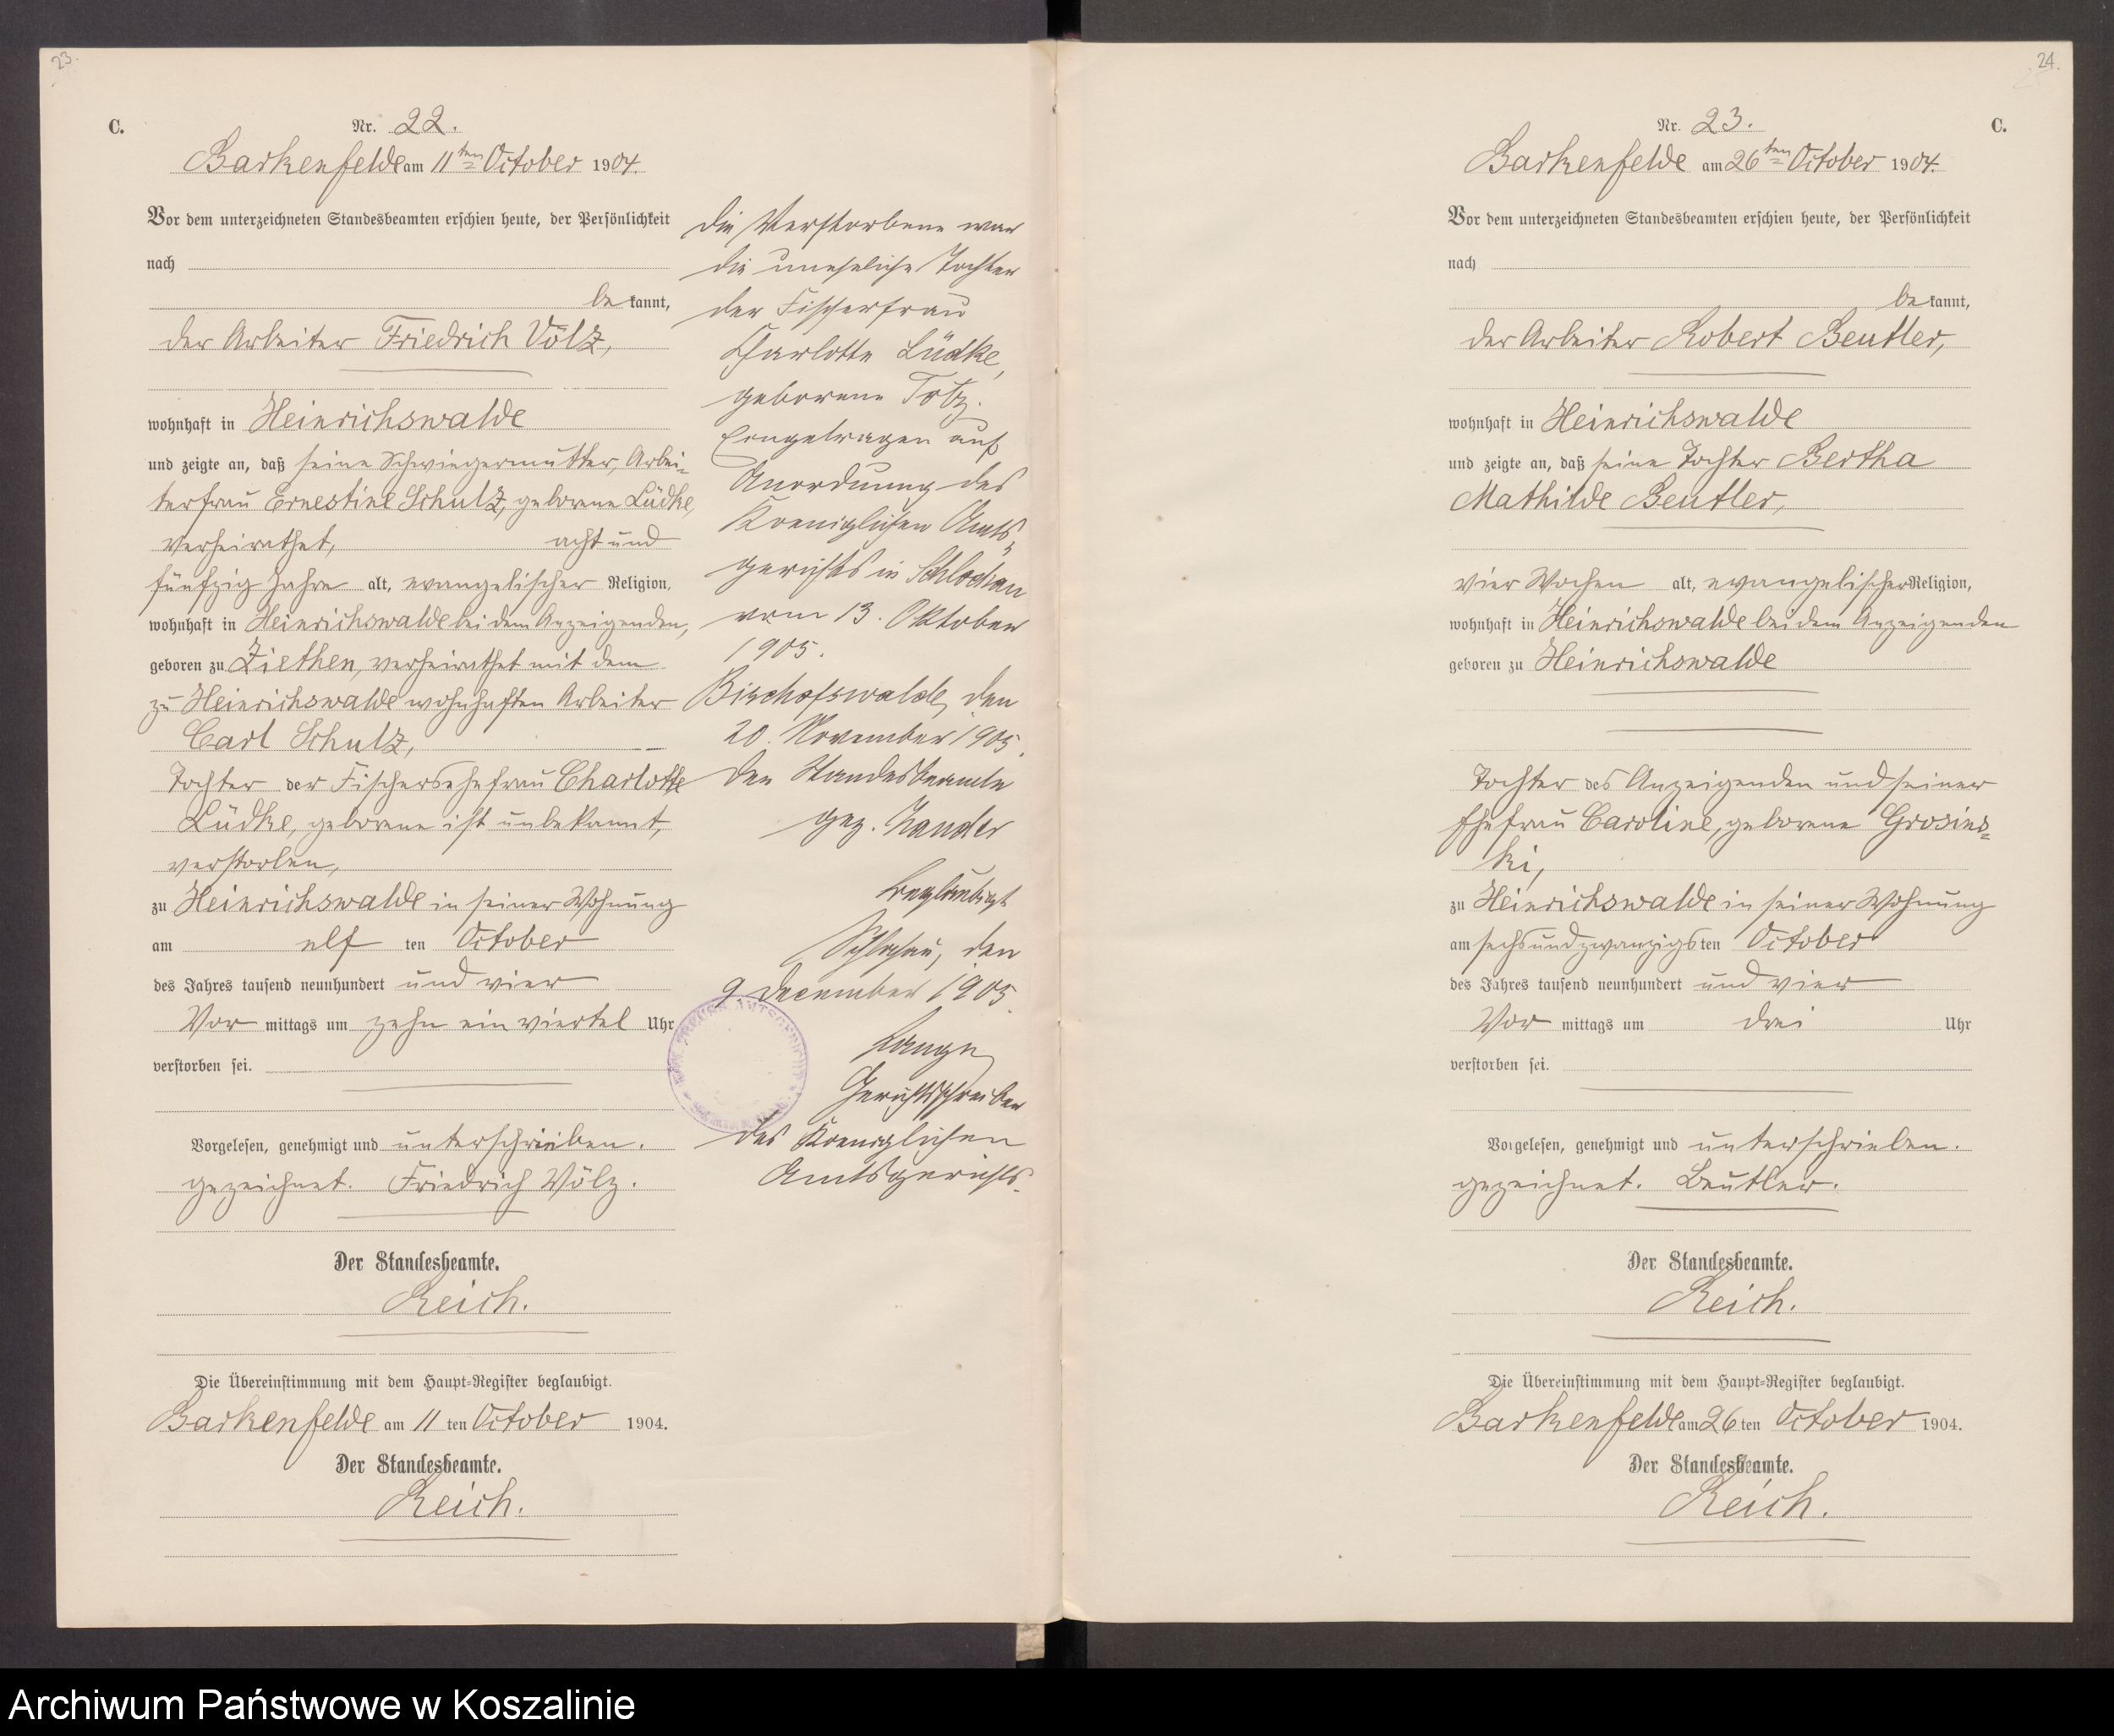 23.
C.
Nr. 22.
Barkenfelde am 11ten October 1904.
Vor dem unterzeichneten Standesbeamten erschien heute, der Persönlichkeit
nach
be kannt,
der Arbeiter Friedrich Völz,
wohnhaft in Heinrichswalde
und zeigte an, daß seine Schwiegermutter, Arbei-
terfrau Ernestine Schulz, geborene Lüdke,
verheirathet, acht und
fünfzig Jahre alt, evangelischer Religion,
wohnhaft in Heinrichswalde bei dem Anzeigenden,
geboren zu Ziethen, verheirathet mit dem
zu Heinrichswalde wohnhaften Arbeiter
Carl Schulz,
Tochter der Fischersehefrau Charlotte
Lüdke, geborene ist unbekannt,
verstorben,
zu Heinrichswalde in seiner Wohnung
am elf ten October
des Jahres tausend neunhundert und vier
Vor mittags um zehn ein viertel Uhr
verstorben sei.
Vorgelesen, genehmigt und unterschrieben.
gezeichnet. Friedrich Völz.
Der Standesbeamte.
Reich.
Die Übereinstimmung mit dem Haupt-Register beglaubigt.
Barkenfelde am 11 ten October 1904.
Der Standesbeamte.
Reich.
Die Verstorbene war
die uneheliche Tochter
der Fischerfrau
Charlotte Lüdke,
geborene Totz.
Eingetragen auf
Anordnung des
Koeniglichen Amts-
gerichts in Schlochau
vom 13. Oktober
1905.
Bischofswalde, den
20. November 1905.
Der Standesbeamte
gez. Zander
Beglaubigt
Schlochau, den
9 December 1905.
Lange
Gerichtsschreiber
des Koeniglichen
Amtsgerichts.
24.
C.
Nr. 23.
Barkenfelde am 26ten October 1904.
Vor dem unterzeichneten Standesbeamten erschien heute, der Persönlichkeit
nach
be kannt,
der Arbeiter Robert Beutler,
wohnhaft in Heinrichswalde
und zeigte an, daß seine Tochter Bertha
Mathilde Beutler,
vier Wochen alt, evangelischer Religion,
wohnhaft in Heinrichswalde bei dem Anzeigenden
geboren zu Heinrichswalde
Tochter des Anzeigenden und seiner
Ehefrau Caroline, geborene Grosins-
ki,
zu Heinrichswalde in seiner Wohnung
am sechsundzwanzigs ten October
des Jahres tausend neunhundert und vier
Vor mittags um drei Uhr
verstorben sei.
Vorgelesen, genehmigt und unterschrieben.
gezeichnet. Beutler.
Der Standesbeamte.
Reich.
Die Übereinstimmung mit dem Haupt-Register beglaubigt.
Barkenfelde am 26 ten October 1904.
Der Standesbeamte.
Reich.
Archiwum Państwowe w Koszalinie